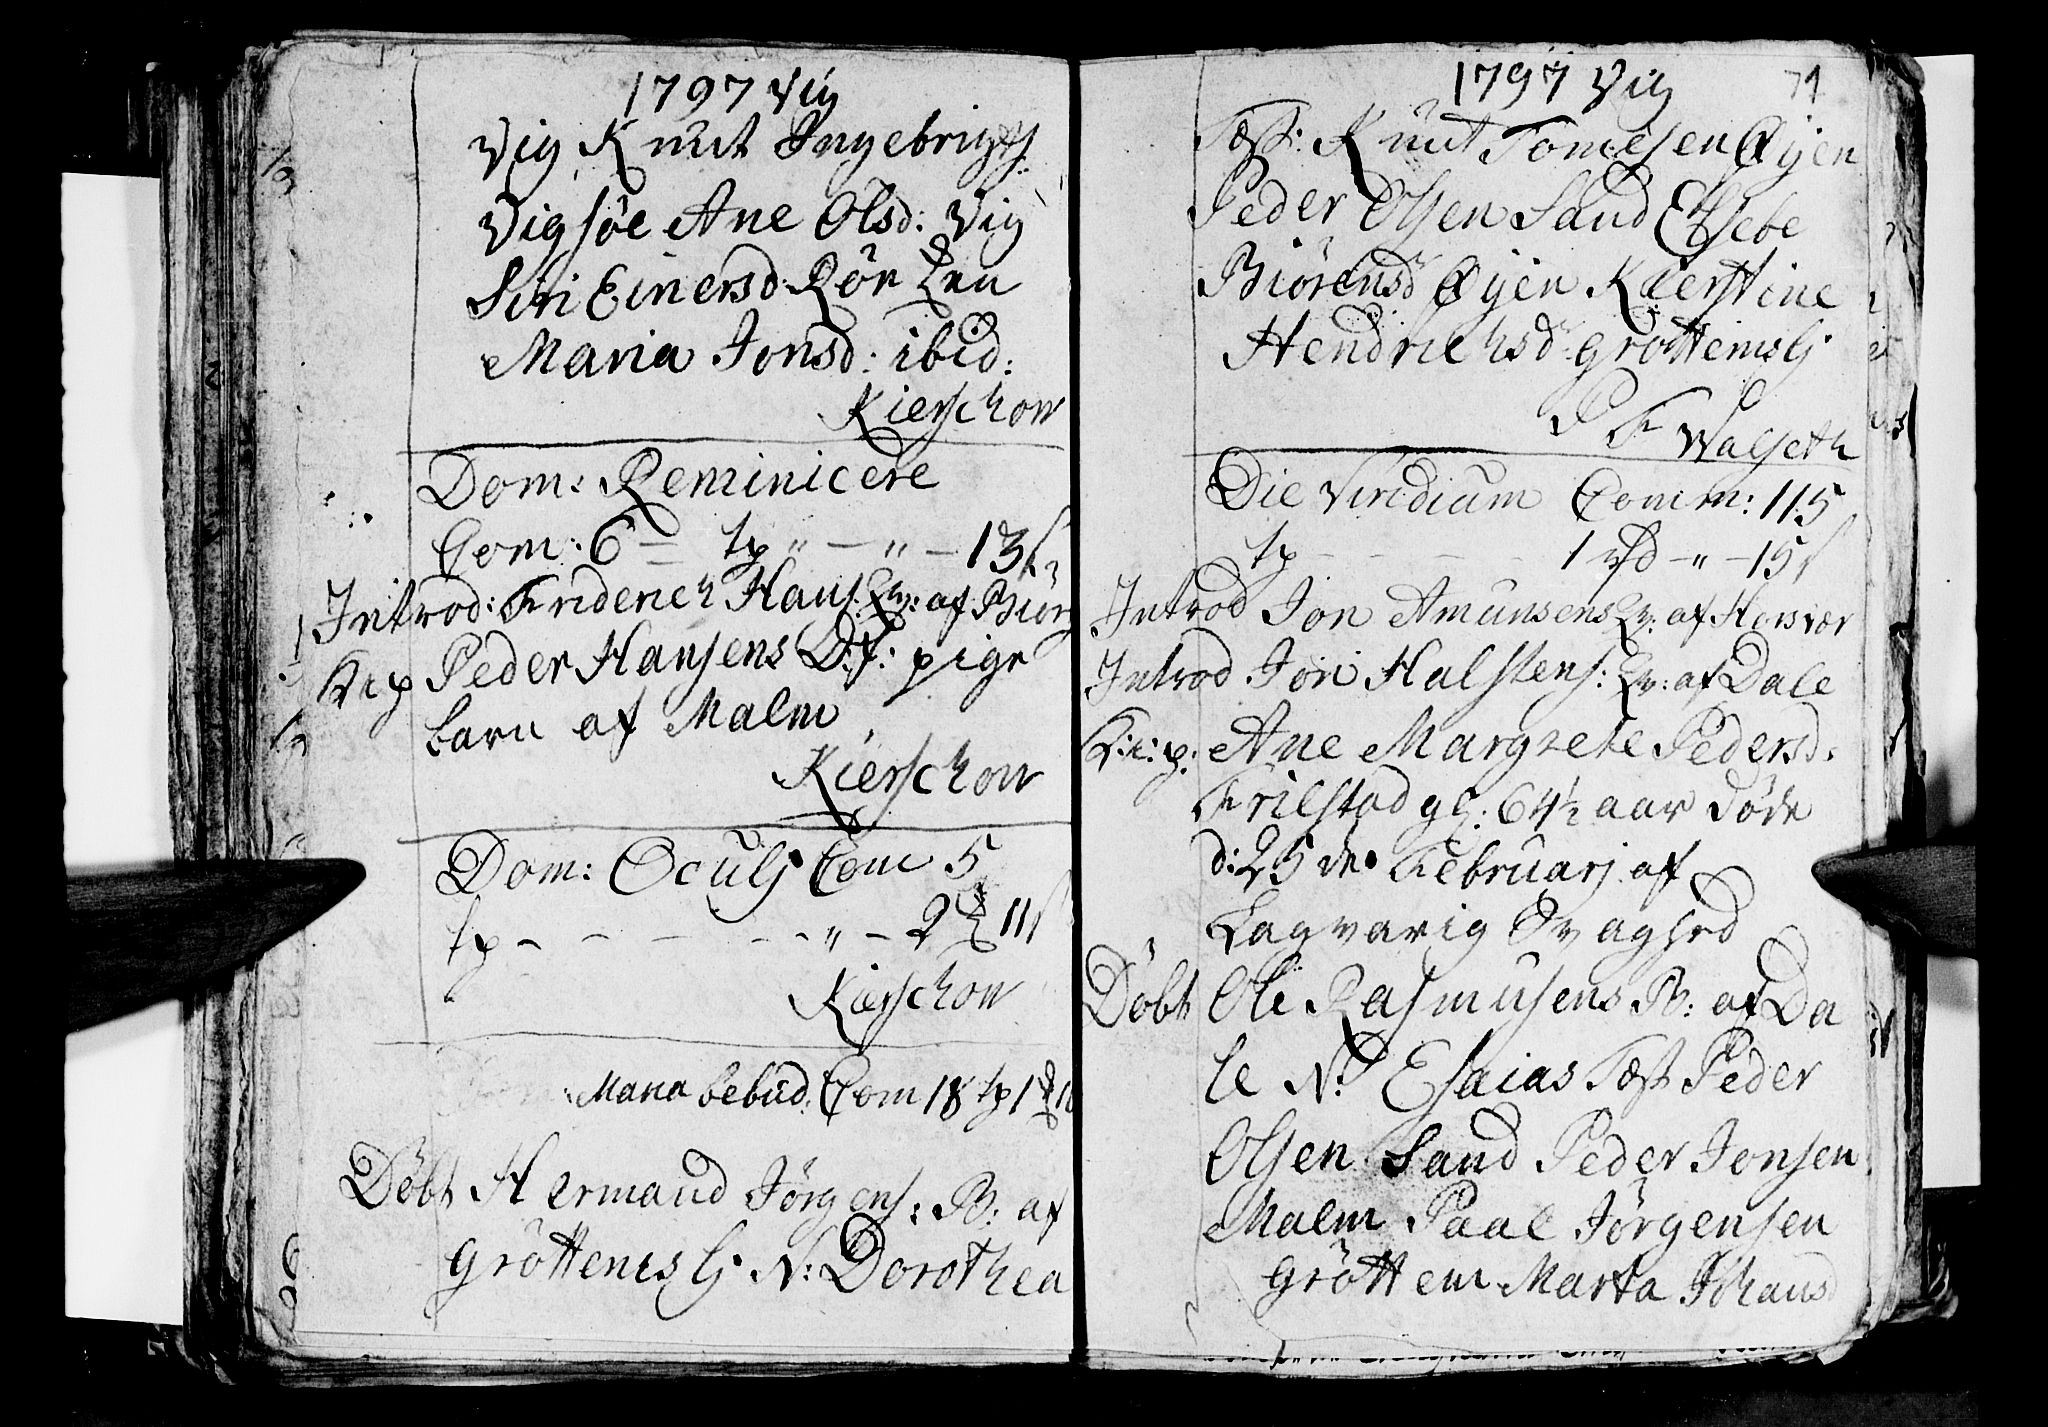 1797 Vig
Vig Knut Ingebrigts:
Vigsöe Ane Olsd: Vig
Siri Einersd: Rör
Maria Jonsd: ibid:
Kierschow
Dom: Reminicere
Com: 6 — tp " — " — 13 s
Introd: Friderich Hans: Qv: af Biör
K: i p Peder Hansens D: f: pige
barn af Malm
Kierschow
Dom: Oculj Com 5
tp — — — — — " — 2 11 s
Kierschow
Maria bebud: Com 18 tp 1
Döbt Hermand Jörgens: B: af
Gröttemslj. N: Dorothea
1797 Vig
71
Test: Knut Tomesen Øyen
Peder Olsen Sand Elsebe
Biörensd Øyen Kierstine
Hendrichsd: Gröttemslj.
P F Walseth
Die Viridium Comm: 115
tp — — — — 1 rd — " — 15 s
Introd Jon Amunsens Qv: af Horsvær
Introd Jon Halstens: Qv: af Dale
K: i: p: Ane Margrete Pedersd:
Frilstad gl: 64½ aar döde
d: 25de Februarj af
Langvarig Svaghed
Döbt Ole Rasmusens B: af Da
le N: Esaias Test Peder
Olsen Sand Peder Jonsen
Malm Paal Jörgensen
Gröttem Marta Johansd